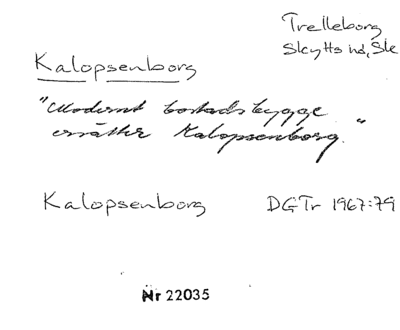 Trelleborg
Skytts hd, Sk
Kalopsenborg
"Modernt bostadsbygge
ersätter Kalopsenborg."
Kalopsenborg
DGTr 1967:79
Nr 22035